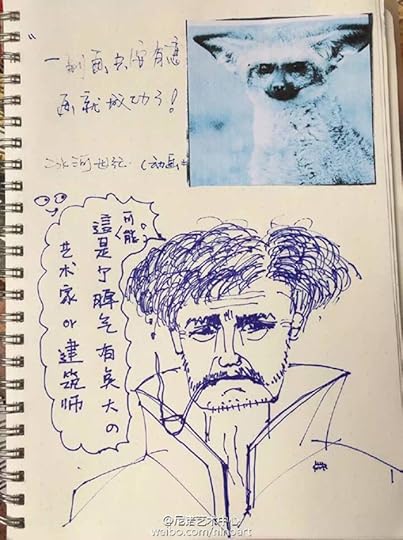 一副画 有意
画就成功了!
冰河世纪 (动画
可能。
這是个脾气有臭大の
艺术家or建筑师
@尼诺艺术中心
weibo.com/ninoart